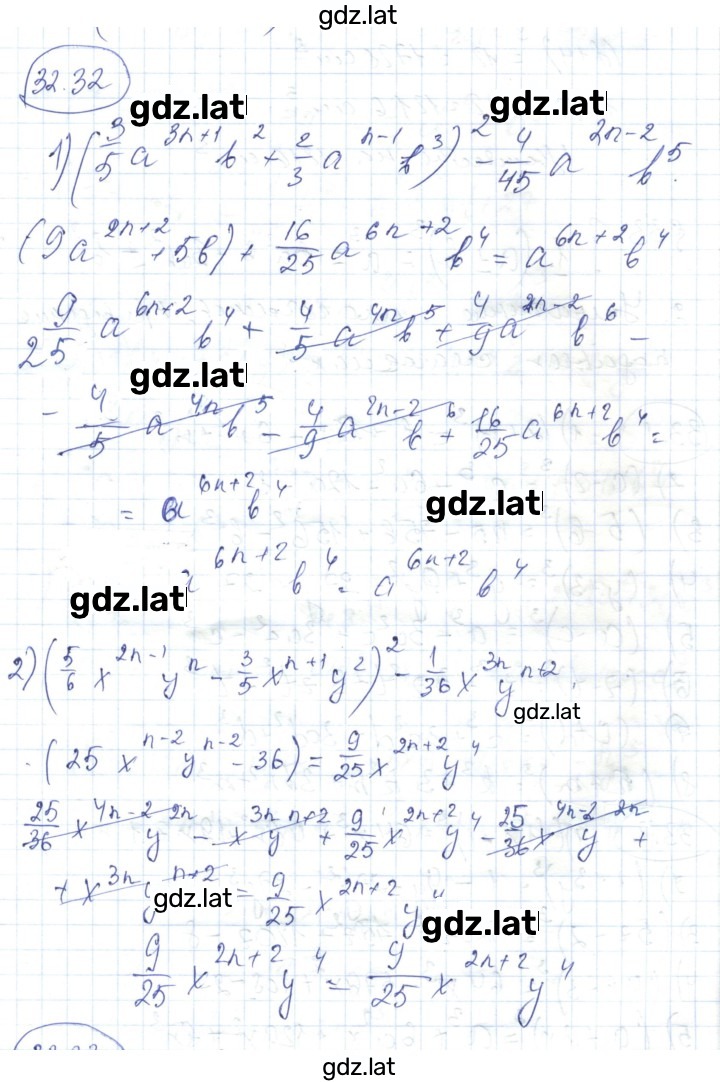 gdz.lat
32.32
gdz.lat gdz.lat
1) (3/5 a^(3n+1) b^2 + 2/3 a^(n-1) b^3)^2 - 4/45 a^(2n-2) b^5 ·
(9a^(2n+2) + 5b) + 16/25 a^(6n+2) b^4 = a^(6n+2) b^4
9/25 a^(6n+2) b^4 + 4/5 a^(4n) b^5 + 4/9 a^(2n-2) b^6 -
gdz.lat
- 4/5 a^(4n) b^5 - 4/9 a^(2n-2) b^6 + 16/25 a^(6n+2) b^4 =
= a^(6n+2) b^4
gdz.lat
a^(6n+2) b^4 = a^(6n+2) b^4
gdz.lat
2) (5/6 x^(2n-1) y^n - 3/5 x^(n+1) y^2)^2 - 1/36 x^(3n) y^(n+2) ·
gdz.lat
· (25 x^(n-2) y^(n-2) - 36) = 9/25 x^(2n+2) y^4
25/36 x^(4n-2) y^(2n) - x^(3n) y^(n+2) + 9/25 x^(2n+2) y^4 - 25/36 x^(4n-2) y^(2n) +
+ x^(3n) y^(n+2) = 9/25 x^(2n+2) y^4
gdz.lat
gdz.lat
9/25 x^(2n+2) y^4 = 9/25 x^(2n+2) y^4
gdz.lat